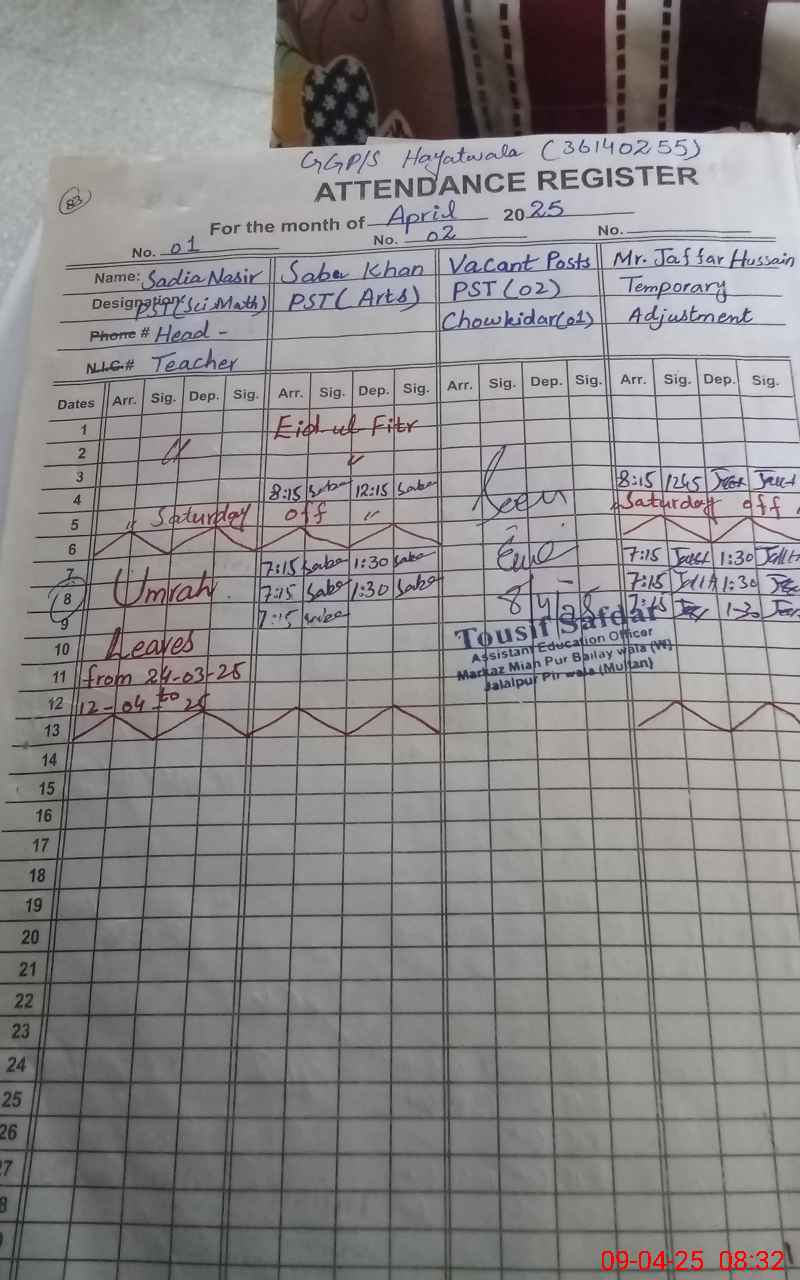 83
GGP/S Hayatwala (36140255)
ATTENDANCE REGISTER
For the month of April 2025
No. 01 No. 02 No.
Name: Sadia Nasir Saba Khan Vacant Posts Mr. Jaffar Hussain
Designation: PST(Sci Math) PST (Arts) PST (02) Temporary
Phone # Head - Chowkidar(01) Adjustment
N.I.C.# Teacher
Dates Arr. Sig. Dep. Sig. Arr. Sig. Dep. Sig. Arr. Sig. Dep. Sig. Arr. Sig. Dep. Sig.
1 Eid ul Fitr
2 〃 〃
3
4 8:15 Saba 12:15 Saba Seen 8:15 1245
5 〃 Saturday off 〃 Saturday off
6
7 7:15 Saba 1:30 Saba 7:15 1:30
8 Umrah 7:15 Saba 1:30 Saba 8/4/25 7:15 1:30
9 7:15 Saba 7:15 1-30
Tousif Safdar
Assistant Education Officer
Markaz Mian Pur Bailay wala (W)
Jalalpur Pir wala (Multan)
10 Leaves
11 from 24-03-25
12 12-04 to 25
13
14
15
16
17
18
19
20
21
22
23
24
25
26
27
8
09-04-25 08:32